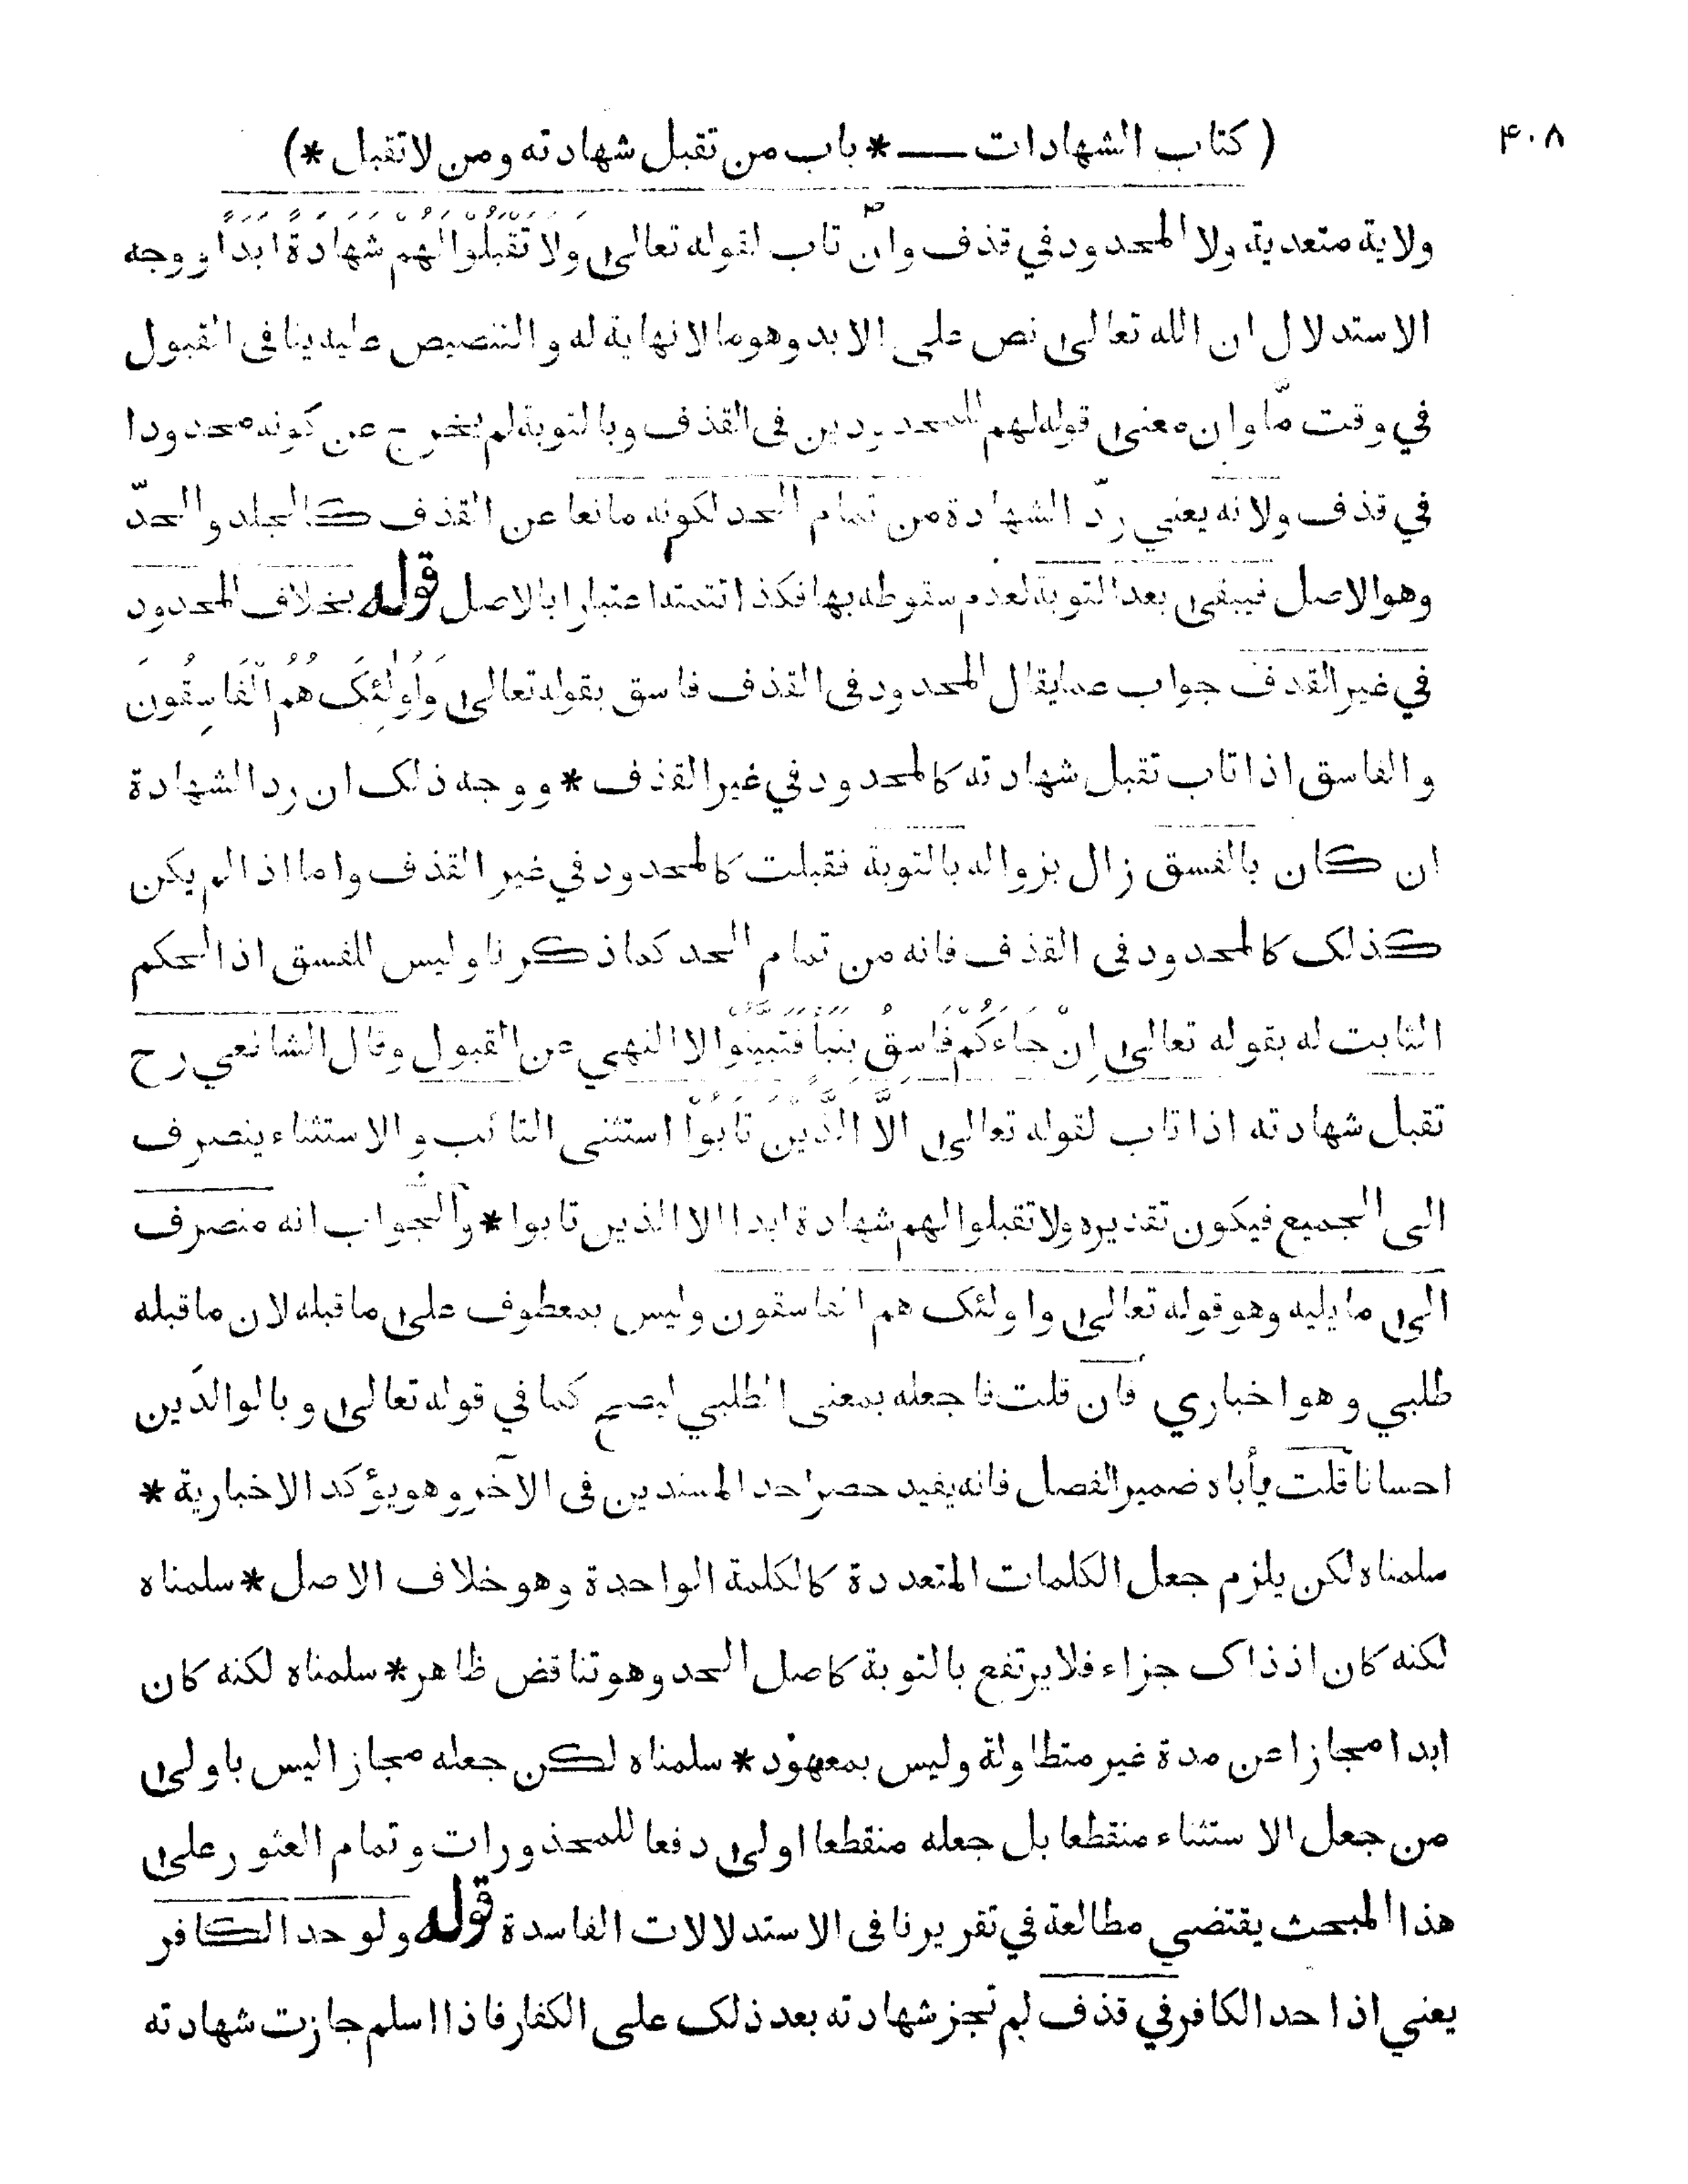 ۴۰۸
( كتاب الشهادات ــــ * باب من تقبل شهادته ومن لا تقبل * )
ولاية متعدية ولا المحدود في قذف وان تاب لقوله تعالى وَلَا تَقْبَلُوْا لَهُمْ شَهَادَةً اَبَدًا ووجه
الاستدلال ان الله تعالى نص على الابد وهو ما لا نهاية له والتنصيص عليه ينافى القبول
في وقت مّا وان معنى قوله لهم للمحدودين فى القذف وبالتوبة لم يخرج عن كونه محدودا
في قذف ولانه يعني ردّ الشهادة من تمام الحد لكونه مانعا عن القذف كالجلد والحدّ
وهو الاصل فيبقى بعد التوبة لعدم سقوطه بها فكذا تتمته اعتبارا بالاصل قوله بخلاف المحدود
في غير القذف جواب عما يقال المحدود فى القذف فاسق بقوله تعالى وَاُولٰئِكَ هُمُ الْفَاسِقُونَ
والفاسق اذا تاب تقبل شهادته كالمحدود في غير القذف * ووجه ذلك ان رد الشهادة
ان كان بالفسق زال بزواله بالتوبة فقبلت كالمحدود في غير القذف واما اذا لم يكن
كذلك كالمحدود فى القذف فانه من تمام الحد كما ذكرنا وليس للفسق اذ الحكم
الثابت له بقوله تعالى اِنْ جَاءَكُمْ فَاسِقٌ بِنَبَاٍ فَتَبَيَّنُوْا لا النهي عن القبول وقال الشافعي رح
تقبل شهادته اذا تاب لقوله تعالى اِلَّا الَّذِيْنَ تَابُوْا استثنى التائب والاستثناء ينصرف
الى الجميع فيكون تقديره ولا تقبلوا لهم شهادة ابدا الا الذين تابوا * والجواب انه منصرف
الى ما يليه وهو قوله تعالى واولئك هم الفاسقون وليس بمعطوف على ما قبله لان ما قبله
طلبي وهو اخباري فان قلت فاجعله بمعنى الطلبي ليصح كما في قوله تعالى وبالوالدين
احسانا قلت يأباه ضمير الفصل فانه يفيد حصر احد المسندين فى الآخر وهو يؤكد الاخبارية *
سلمناه لكن يلزم جعل الكلمات المتعددة كالكلمة الواحدة وهو خلاف الاصل * سلمناه
لكنه كان اذ ذاك جزاء فلا يرتفع بالتوبة كاصل الحد وهو تناقض ظاهر * سلمناه لكنه كان
ابدا مجازا عن مدة غير متطاولة وليس بمعهود * سلمناه لكن جعله مجازا ليس باولى
من جعل الاستثناء منقطعا بل جعله منقطعا اولى دفعا للمحذورات وتمام العثور على
هذا المبحث يقتضي مطالعة في تقريرنا فى الاستدلالات الفاسدة قوله ولو حد الكافر
يعني اذا حد الكافر في قذف لم تجز شهادته بعد ذلك على الكفار فاذا اسلم جازت شهادته